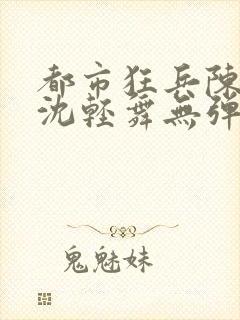 都市狂兵陳
沈輕舞無彈
鬼魅妹